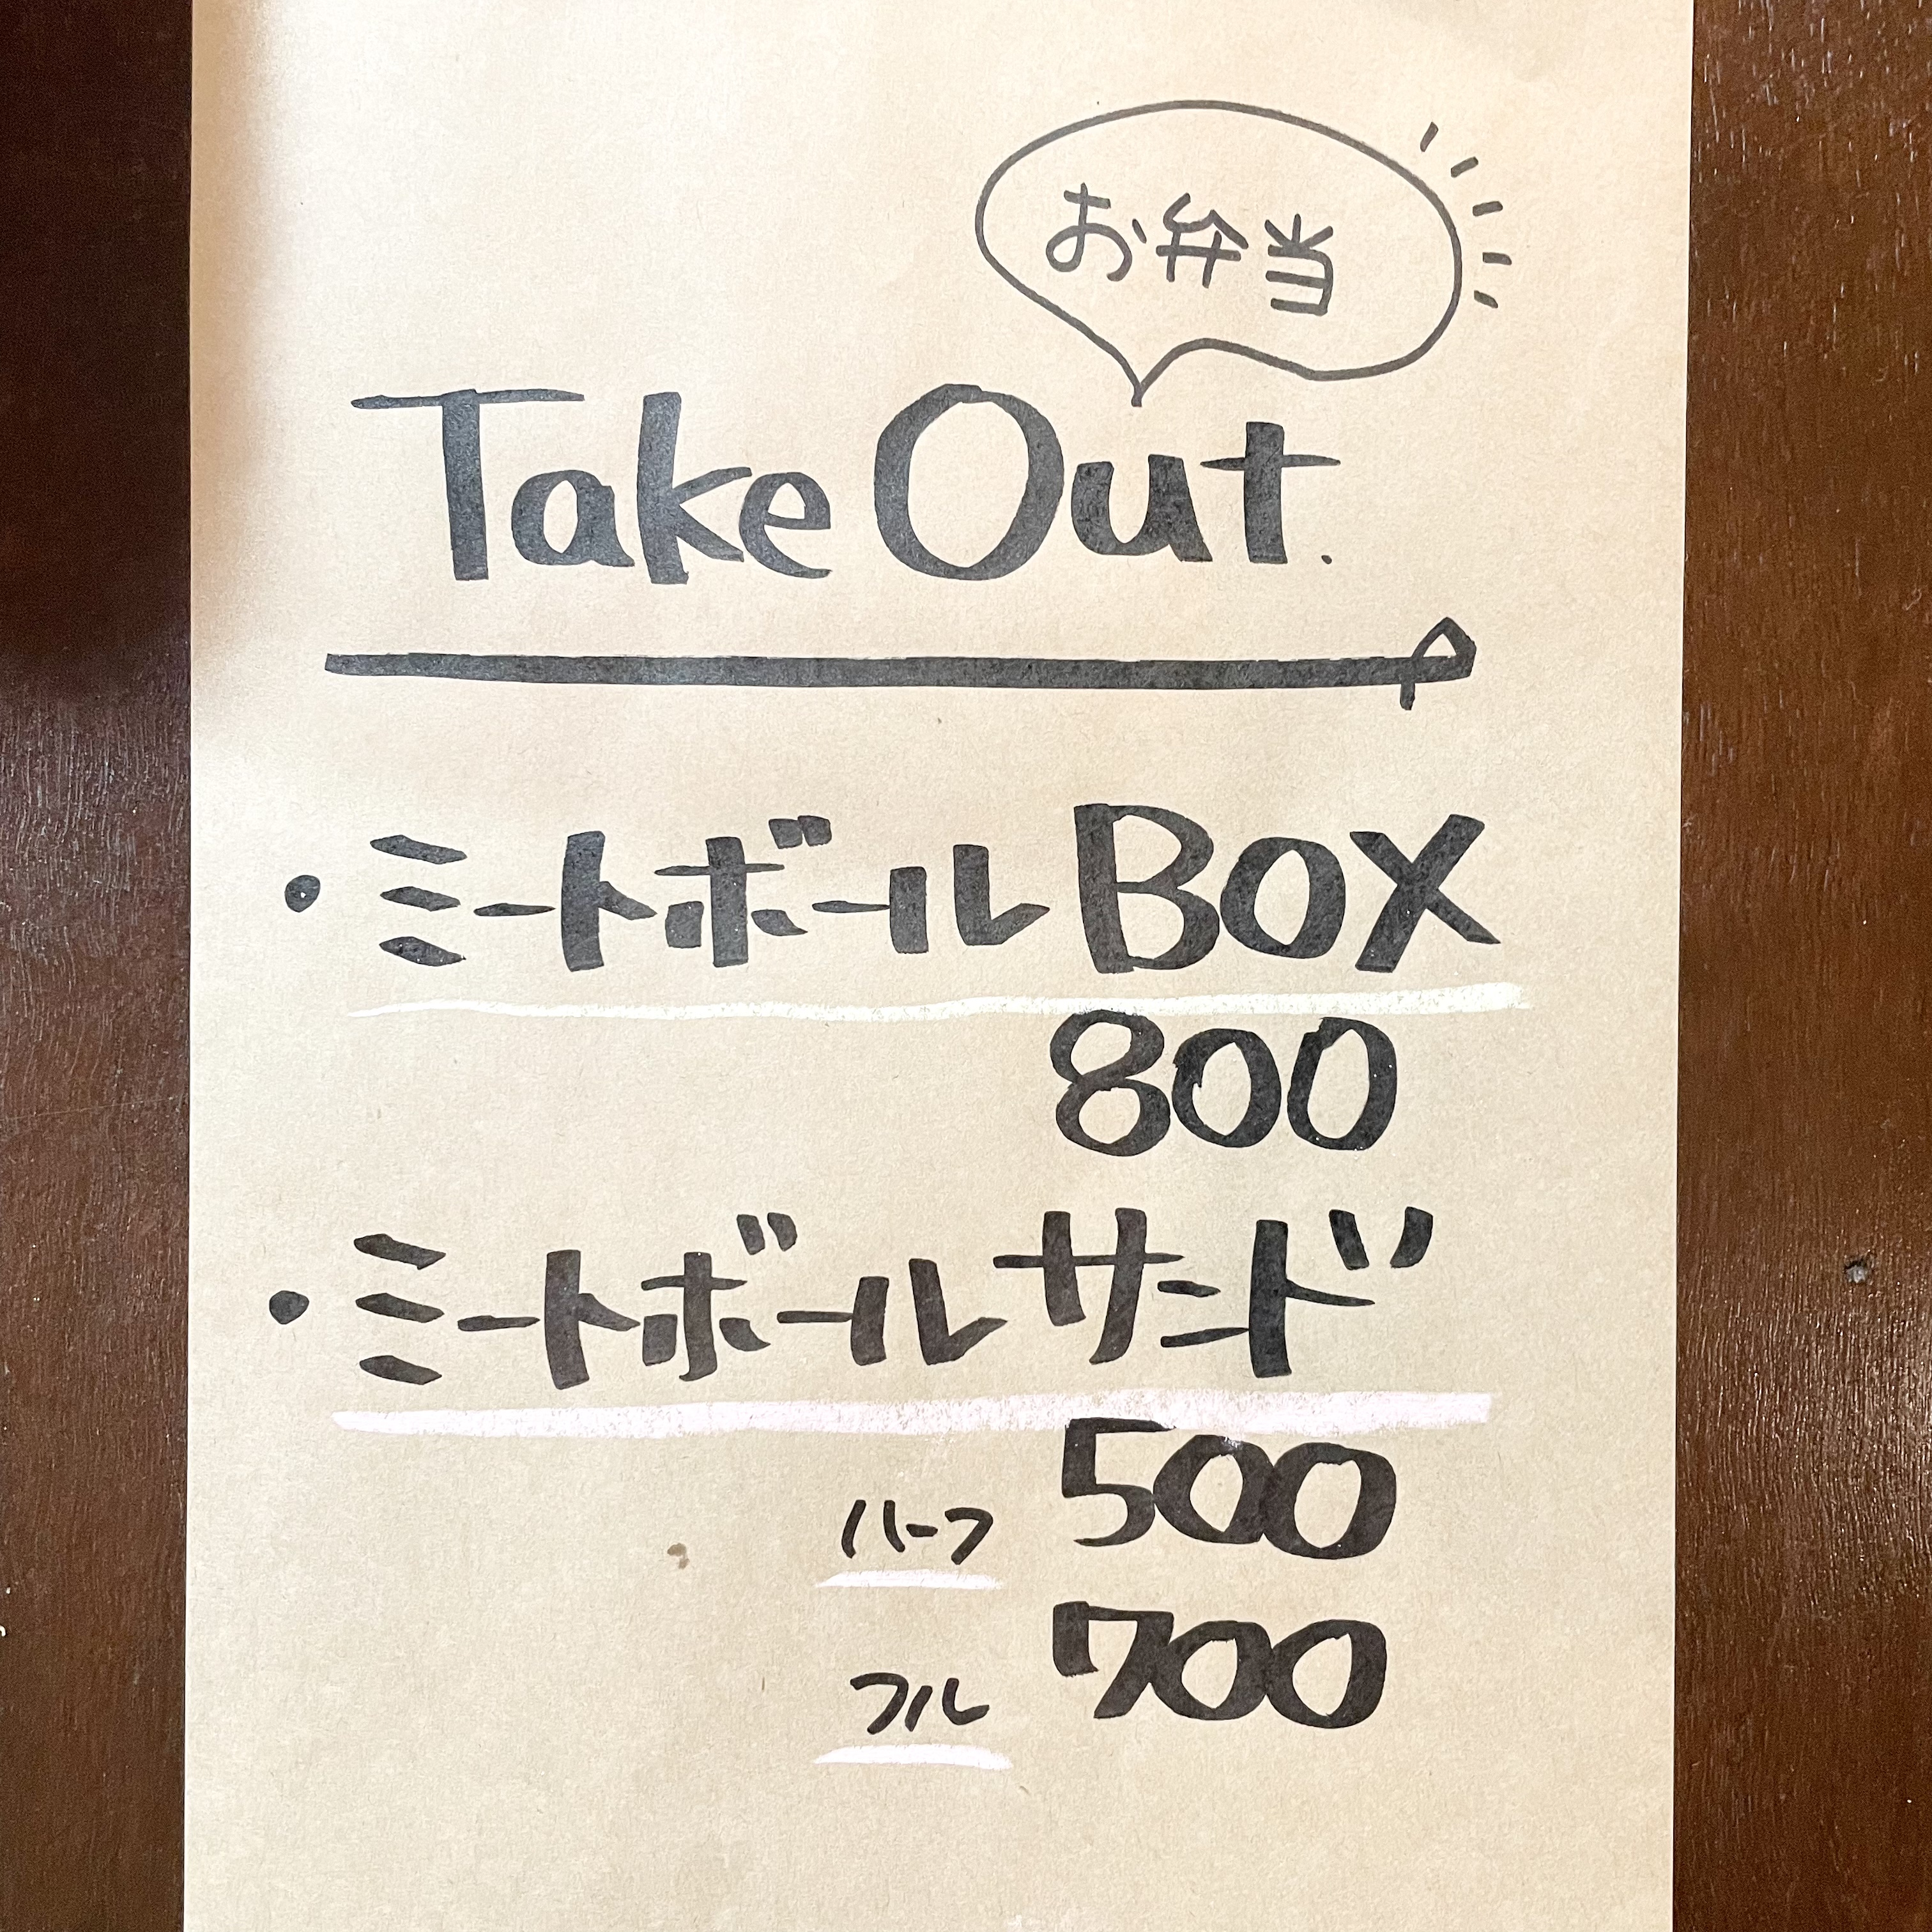 お弁当
Take Out.
・ミートボールBOX
800
・ミートボールサンド
ハーフ 500
フル 700